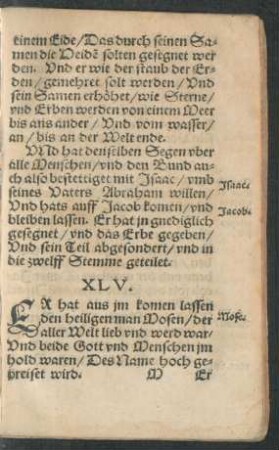 einem Eide / Das durch seinen Sa-
men die Heidē solten gesegnet wer
den. Vnd er wie der staub der Er-
den / gemehret solt werden / Vnd
sein Samen erhöhet / wie Sterne /
vnd Erben werden von einem Meer
bis ans ander / Vnd vom wasser /
an / bis an der Welt ende.
VNd hat denselben Segen vber
alle Menschen / vnd den Bund au-
ch also bestettiget mit Isaac / vmb
Isaac.
seines Vaters Abraham willen /
Vnd hats auff Jacob komen / vnd
Jacob.
bleiben lassen. Er hat jn gnediglich
gesegnet / vnd das Erbe gegeben /
Vnd sein Teil abgesondert / vnd in
die zwelff Stemme geteilet.
XLV.
ER hat aus jm komen lassen
den heiligen man Mosen / der
Mose.
aller Welt lieb vnd werd war /
Vnd beide Gott vnd Menschen jm
hold waren / Des Name hoch ge-
preiset wird. M Er